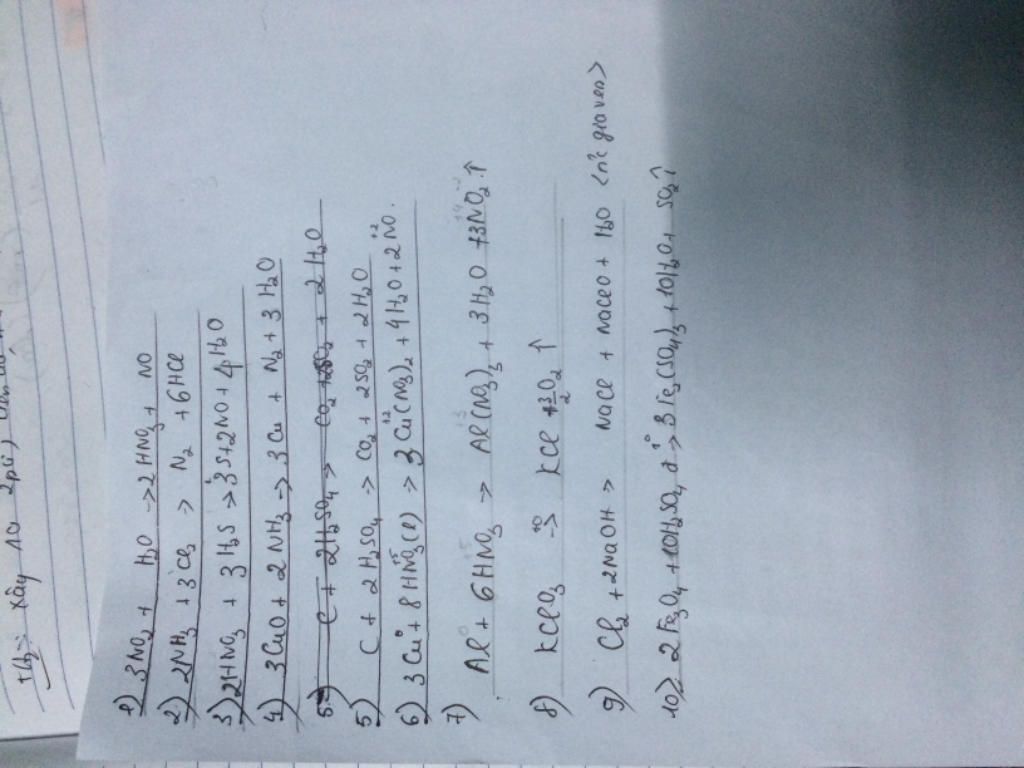 xảy ra
1) 3NO2 + H2O -> 2HNO3 + NO
2) 2NH3 + 3Cl2 -> N2 + 6HCl
3) 2HNO3 + 3H2S -> 3S + 2NO + 4H2O
4) 3CuO + 2NH3 -> 3Cu + N2 + 3H2O
5) C + 2H2SO4 -> CO2 + 2SO2 + 2H2O
5) C + 2H2SO4 -> CO2 + 2SO2 + 2H2O
6) 3Cu⁰ + 8HN⁺⁵O3(l) -> 3Cu⁺²(NO3)2 + 4H2O + 2N⁺²O.
7) Al⁰ + 6HN⁺⁵O3 -> Al⁺³(NO3)3 + 3H2O + 3N⁺⁴O2 ↑
8) KClO3 -t⁰-> KCl + 3/2 O2 ↑
9) Cl2 + 2NaOH -> NaCl + NaClO + H2O <nc giaven>
10) 2Fe3O4 + 10H2SO4 đ -t⁰-> 3Fe2(SO4)3 + 10H2O + SO2 ↑